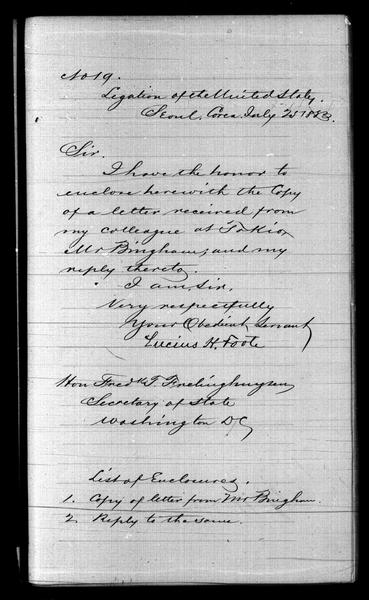 No 19.
Legation of the United States,
Seoul, Corea. July 25 1883.
Sir.
I have the honor to
enclose herewith the Copy
of a letter received from
my colleague at Tokio,
Mr Bingham; and my
reply thereto.
I am, Sir,
Very respectfully
Your Obedient Servant
Lucius H. Foote
Hon Fredk T. Frelinghuysen
Secretary of State
Washington DC
List of Enclosures.
1. Copy of letter from Mr Bingham.
2. Reply to the same.